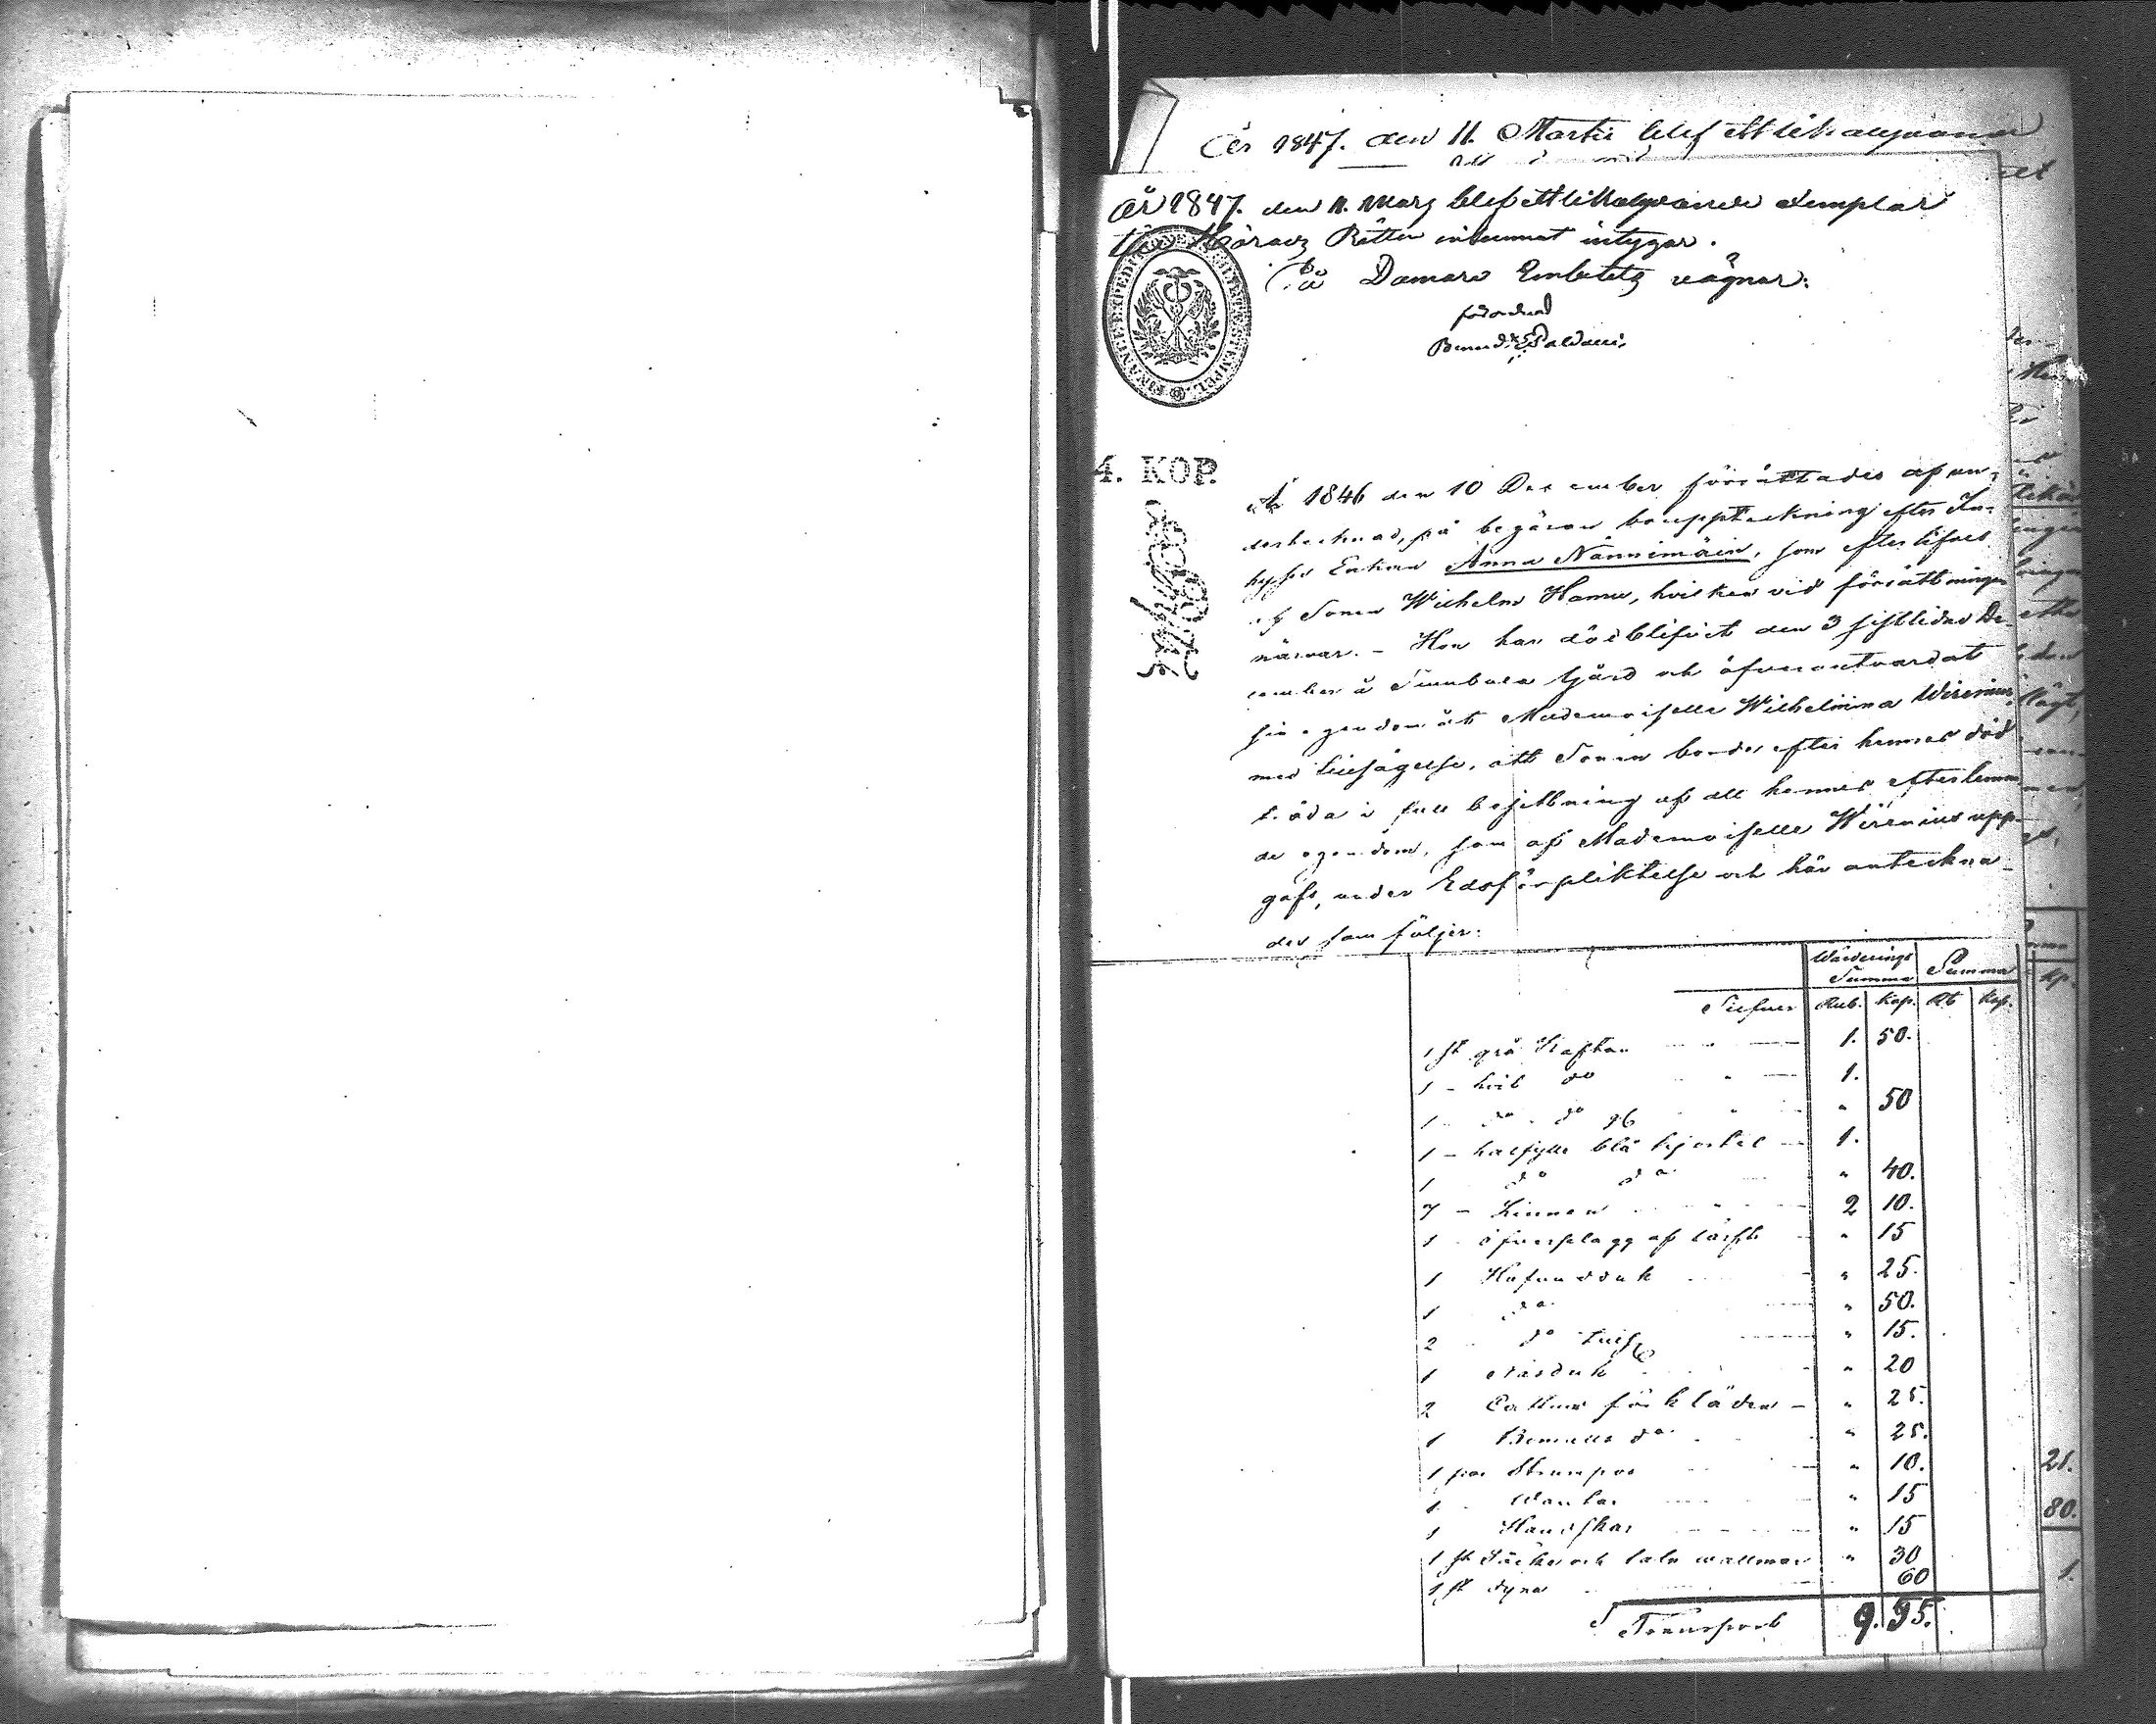 År 1847. den 11. Martii blef ett lika lydande
År 1847. den 11. Mars blef ett lika lydande Exemplar
till Härads Rätten inlemnat intygar.
På Domare Embetets vägnar:
förordnad
FINANCE EXPEDITIONENS CHARTÆ STEMPEL
4. KOP.
År 1846 den 10 December förrättades af un-
dertecknad, på begäran bouppteckning efter In-
hyses Enkan Anna Nännimäin, som efterlefves
af Sonen Wilhelm Hannu, hvilken vid förrättningen
närvar. - Hon har död blifvit den 3 sistlidne De-
cember å Gård och öfverantvardat
sin egendom åt Mademoiselle Wilhelmina Wirenius,
med tillsägelse, att Sonen borde efter hennes död
träda i full besittning af all hennes efterlemna
de egendom, som af Mademoiselle Wirenius upp-
gafs, under Edsförpliktelse och här anteckna-
des som följer:
Wärderings Summa Summa
Silfver Rub. Kop. Rb Kop.
1 st grå Kaftan 1. 50.
1 - hvit do 1.
1 - do do " 50
1 - halfylle blå kjortel 1.
1 do do " 40.
7 - Linnen 2 10.
1 - öfverplagg af lärft " 15
1 Hufvudduk " 25.
1 do " 50.
2 do " 15.
1 Näsduk " 20
2 Cattuns förkläden - " 25.
1 do " 25.
1 par Strumpor " 10.
1 - Wantar " 15
1 Handskar " 15
1 st Täcke och wallmar " 30
1 st dyna 60
Transport 9. 95.
21.
80.
1.